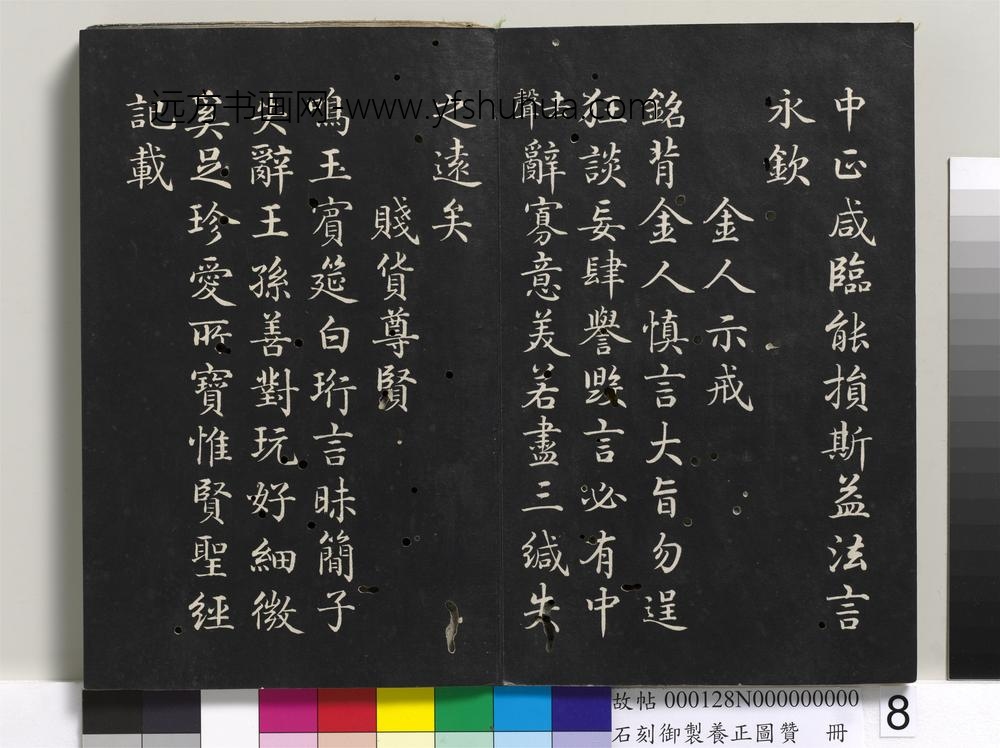 中正咸臨能損斯益法言
永欽
金人示戒
銘背金人慎言大旨勿逞
狂談妄肆譽毀言必有中
聲辭寡意美若盡三緘失
之遠矣
賤貨尊賢
鳴玉賓筵白珩言昧簡子
與辭王孫善對玩好細微
奚足珍愛所寶惟賢聖經
記載
远方书画网-www.yfshuhua.com
故帖 000128N000000000
石刻御製養正圖贊 冊
8